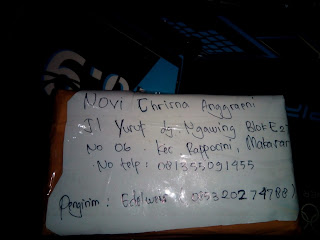 NOVI Chrisna Anggraeni
Jl Yusuf dg Ngawing Blok E 27
No 06 . Kec Rappocini, Makassar
No telp : 081355091455
Pengirim : Edelweis (085320274788)